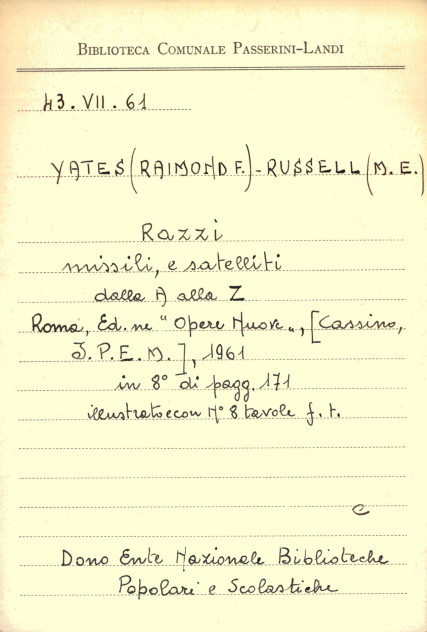 BIBLIOTECA COMUNALE PASSERINI-LANDI
43.VII.61
YATES (RAIMOND F.) - RUSSELL (M. E.)
Razzi
missili, e satelliti
dalla A alla Z
Roma, Ed. ne "Opere Nuove", [Cassino,
I.P.E.M.], 1961
in 8° di pagg. 171
illustrato con N° 8 tavole f. t.
C
Dono Ente Nazionale Biblioteche
Popolari e Scolastiche